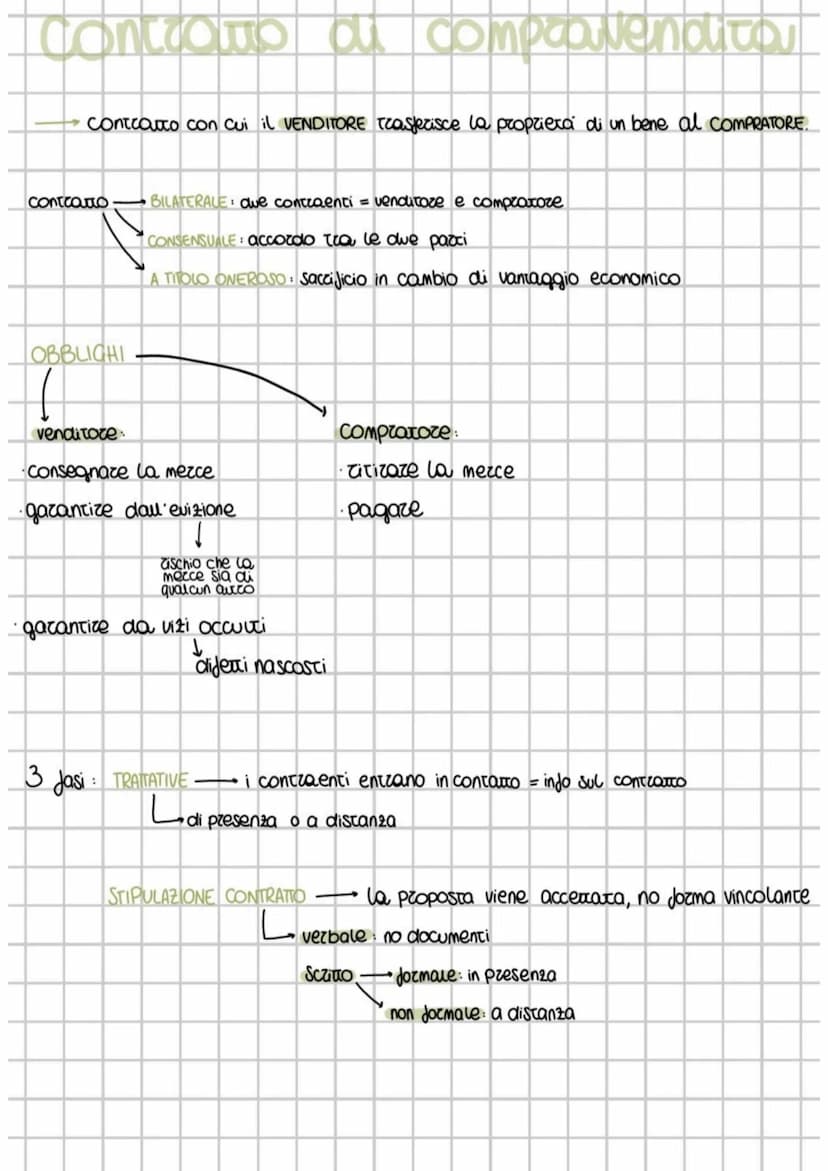 Contratto di compravendita
→ contratto con cui il VENDITORE trasferisce la proprietà di un bene al COMPRATORE.
contratto → BILATERALE: due contraenti = venditore e compratore
→ CONSENSUALE: accordo tra le due parti
→ A TITOLO ONEROSO: sacrificio in cambio di vantaggio economico
OBBLIGHI
venditore: compratore:
· consegnare la merce · ritirare la merce
· garantire dall'evizione · pagare
↓
rischio che la
merce sia di
qualcun altro
· garantire da vizi occulti
↓
difetti nascosti
3 fasi: TRATTATIVE → i contraenti entrano in contatto = info sul contratto
→ di presenza o a distanza
STIPULAZIONE CONTRATTO → la proposta viene accettata, no forma vincolante
→ verbale: no documenti
scritto → formale: in presenza
→ non formale: a distanza